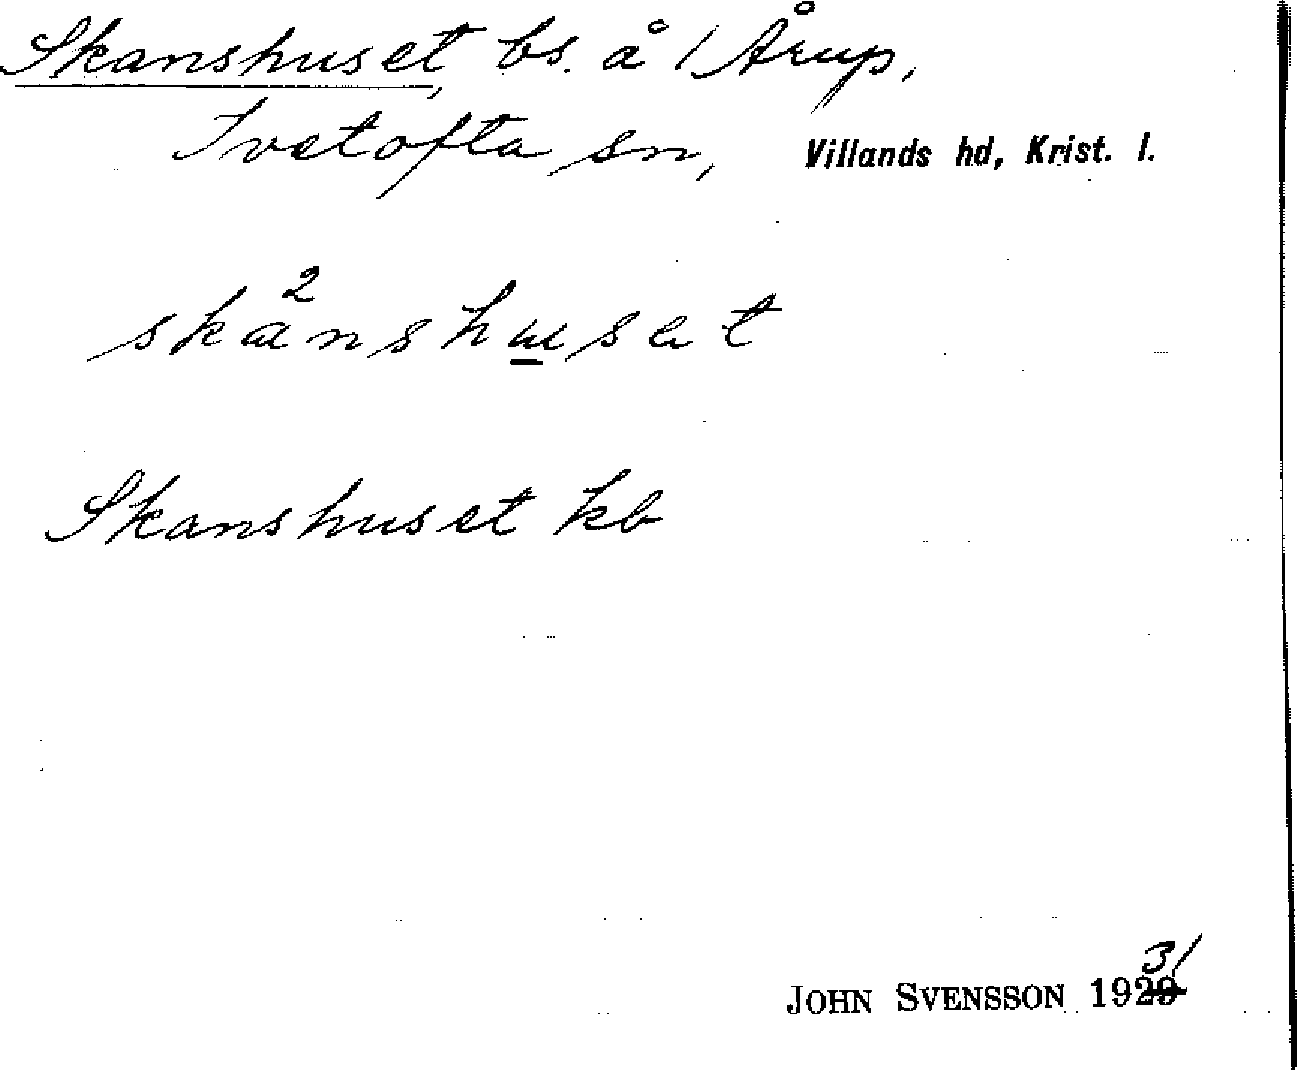 Skanshuset, bs. å 1 Årup,
Ivetofta sn, Villands hd, Krist. l.
ska²nshuset
Skanshuset kb
JOHN SVENSSON 1931